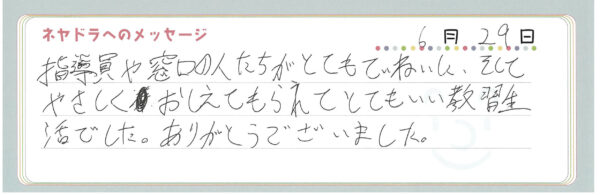 ネヤドラへのメッセージ 6月29日
指導員や窓口の人たちがとてもていねいに、そして
やさしくおしえてもられてとてもいい教習生
活でした。ありがとうございました。